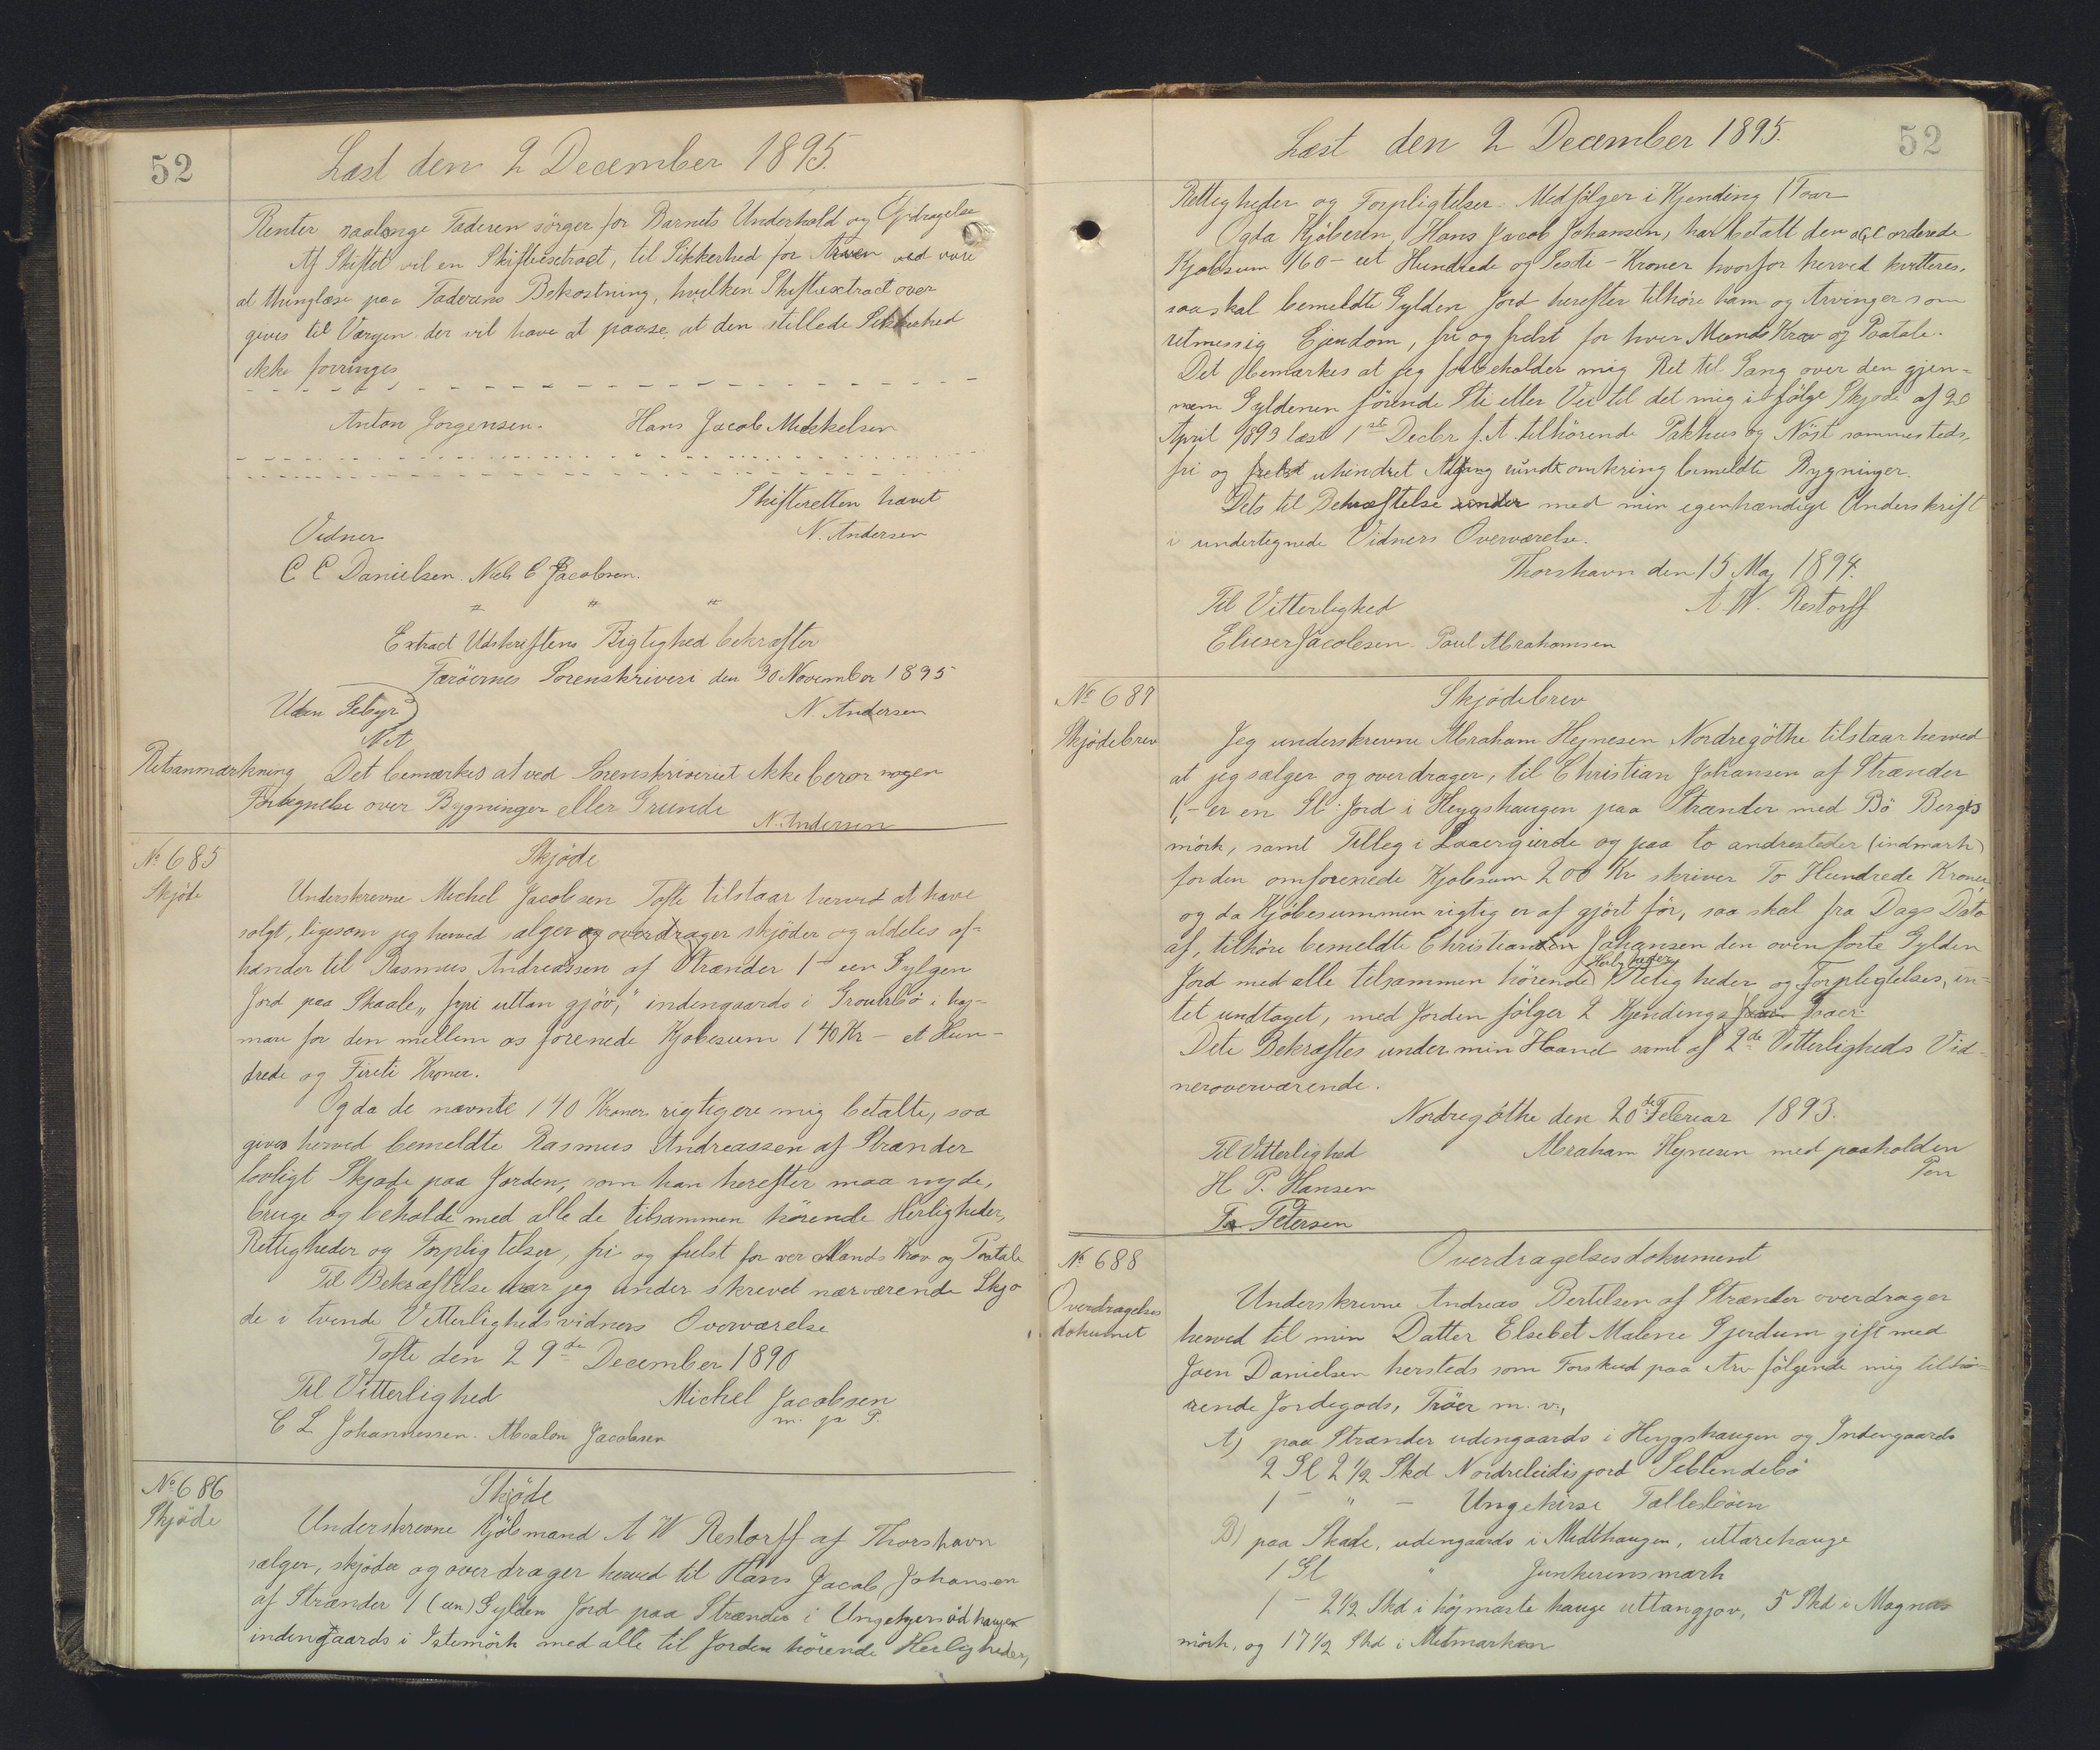 52
Læst den 2 December 1895.
Renter saalænge Faderen sörger for Barnets Underhold og Opdragelse
Af Skiftet vil en Skifteextract, til Sikkerhed for Arven ved være
at thinglæse paa Faderens Bekostning, hvilken Skifteextract over
gives til Værgen der vil have at paase at den stillede Sikkerhed
ikke forringes
Anton Jorgensen. Hans Jacob Mickkelsen
Skifteretten hævet
Vidner N. Andersen
C C Danielsen. Niels C Jacobsen.
" " "
Extract Udskriftens Rigtighed bekræfter
Færöernes Sorenskriveri den 30 November 1895
Uden Gebyr N. Andersen
N.A
Retsanmærkning Det bemærkes at ved Sorenskriveriet ikke beror nogen
Fortegnelse over Bygninger eller Grunde N. Andersen
No 685 Skjöde
Skjöde Underskrevne Michel Jacobsen Tofte tilstaar herved at have
solgt, ligesom jeg herved sælger og overdrager skjöder og aldeles af-
hænder til Rasmus Andreassen af Strænder 1 - een Gylgen
Jord paa Skaale „ fyri uttan gjöv," indengaards i i höj-
mare for den mellem os forenede Kjobesum 140 Kr - et Hun-
drede og Fireti Kroner.
Og da de nævnte 140 Kroner rigtig ere mig betalte, saa
gives herved bemeldte Rasmus Andreassen af Strænder
lovligt Skjøde paa Jorden, som han herefter maa nyde,
bruge og beholde med alle de tilsammen hörende Herligheder,
Rettigheder og Forpligtelser, fri og frelst for ver Mands Krav og Paatale
Til Bekræftelse har jeg under skrevet nærværende Skjö
de i tvende Vitterligheds vidners Overværelse
Tofte den 29de December 1890
Til Vitterlighed Michel Jacobsen
C L Johannessen. Absalon Jacobsen m. p. P.
No 686 Skjöde
Skjöde Underskrevne Kjöbmand A W Restorff af Thorshavn
sælger, skjøder og over drager herved til Hans Jacob Johansen
af Strænder 1 (een) Gylden Jord paa Strænder i
indengaards i Istemörk med alle til Jorden hörende Herligheder,
Læst den 2 December 1895.
52
Rettigheder og Forpligtelser. Medfölger i Kjending 1 Foar
Og da Kjöberen, Hans Jacob Johansen, har betalt den accorderede
Kjøbsum 160 - et Hundrede og Seste - Kroner hvorfor herved kvitteres,
saa skal bemeldte Gylden Jord herefter tilhöre ham og Arvinger som
retmessig Ejendom, fri og frelst for hver Mands Krav og Paatale.
Det bemærkes at jeg forbeholder mig Ret til Gang over den gjen-
nem Gyldenen förende Sti eller Vei til det mig i fölge Skjøde af 20
April 1893 læst 1ste Decbr f. A. tilhörende Pakhus og Nöst sammesteds,
fri og frelst uhindret Adgang rundt omkring bemeldte Bygninger.
Dets til Bekræftelse under med min egenhændige Underskrift
i undertegnede Vidners Overværelse.
Thorshavn den 15 Maj 1894.
Til Vitterlighed A. W. Restorff
Elieser Jacobsen. Poul Abrahamsen
No 687 Skjödebrev
Skjödebrev Jeg underskrevne Abraham Hejnesen Nordregöthe tilstaar herved
at jeg sælger og overdrager, til Christian Johansen af Strænder
1, - er en Gl. Jord i Heygshaugen paa Strænder med Bö Bergis
mörk, samt Tilleg i og paa to andresteder (indmark)
for den omforenede Kjobsum 200 Kr skriver To Hundrede Kroner
og da Kjöbesummen rigtig er af gjört för, saa skal fra Dags Dato
af, tilhöre bemeldte Christian Johansen den oven förte Gylden
Herligheder
Jord med alle tilsammen hörende Retigheder og Forpligtelser, in-
tet undtaget, med Jorden fölger 2 Kjendings Faaer.
Dete Bekræftes under min Haand samt af 2de Vitterligheds Vid-
neroverværende.
Nordregöthe den 20de Februar 1893.
Til Vitterlighed Abraham Hejnesen med paaholden
H P. Hansen Pen
Petersen
No 688 Overdragelsesdokument
Overdragelses Underskrevne Andreas Bertelsen af Strænder overdrager
dokument herved til min Datter Elsebet Malene Gjerdum gift med
Joen Danielsen hersteds som Forskud paa Arv fölgende mig tilhö-
rende Jordegods, Tröer m. v.,
A) paa Strænder udengaards i Heygshaugen og Indengaards
2 Gl 2 1/2 Skd Nordreleidisjord
1 - " -
B) paa Skaale, udengaards i Midthaugen, uttarehauge
1 Gl " Junkerensmark
1 - 2 1/2 Skd i höjmaste hauge uttangjov, 5 Skd i Magnus
mörk, og 17 1/2 Skd i Metmarken